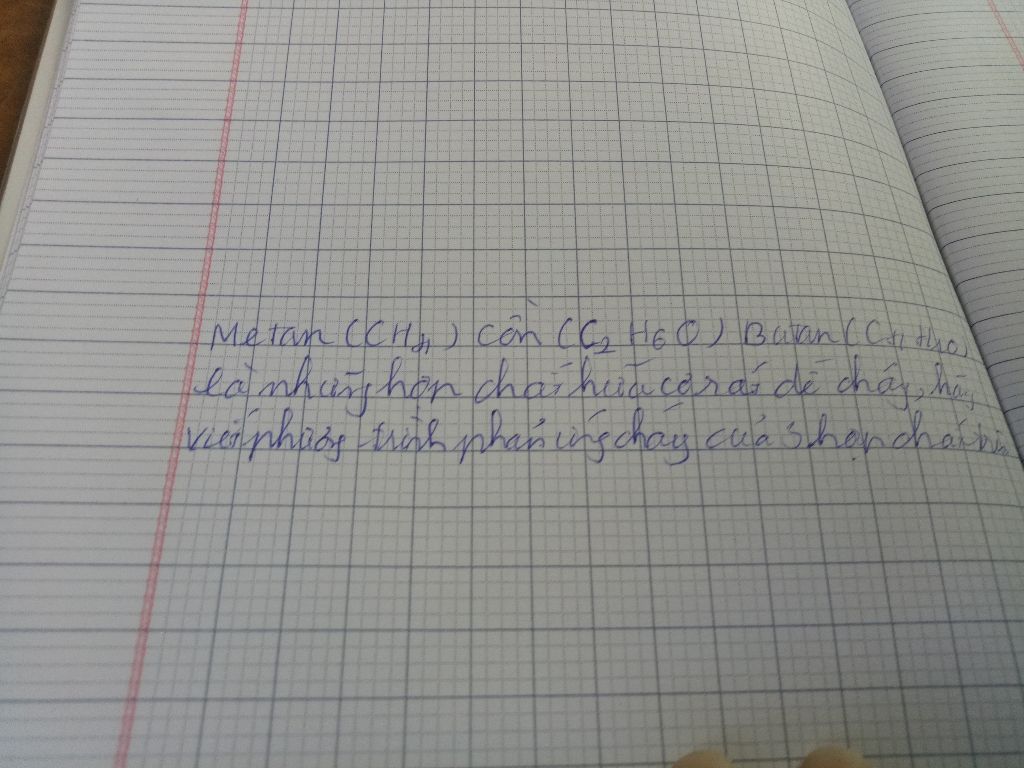 Metan (CH4) cồn (C2H6O) Butan (C4H10)
là những hợp chất hữu cơ rất dễ cháy, hãy
viết phương trình phản ứng cháy của 3 hợp chất trên